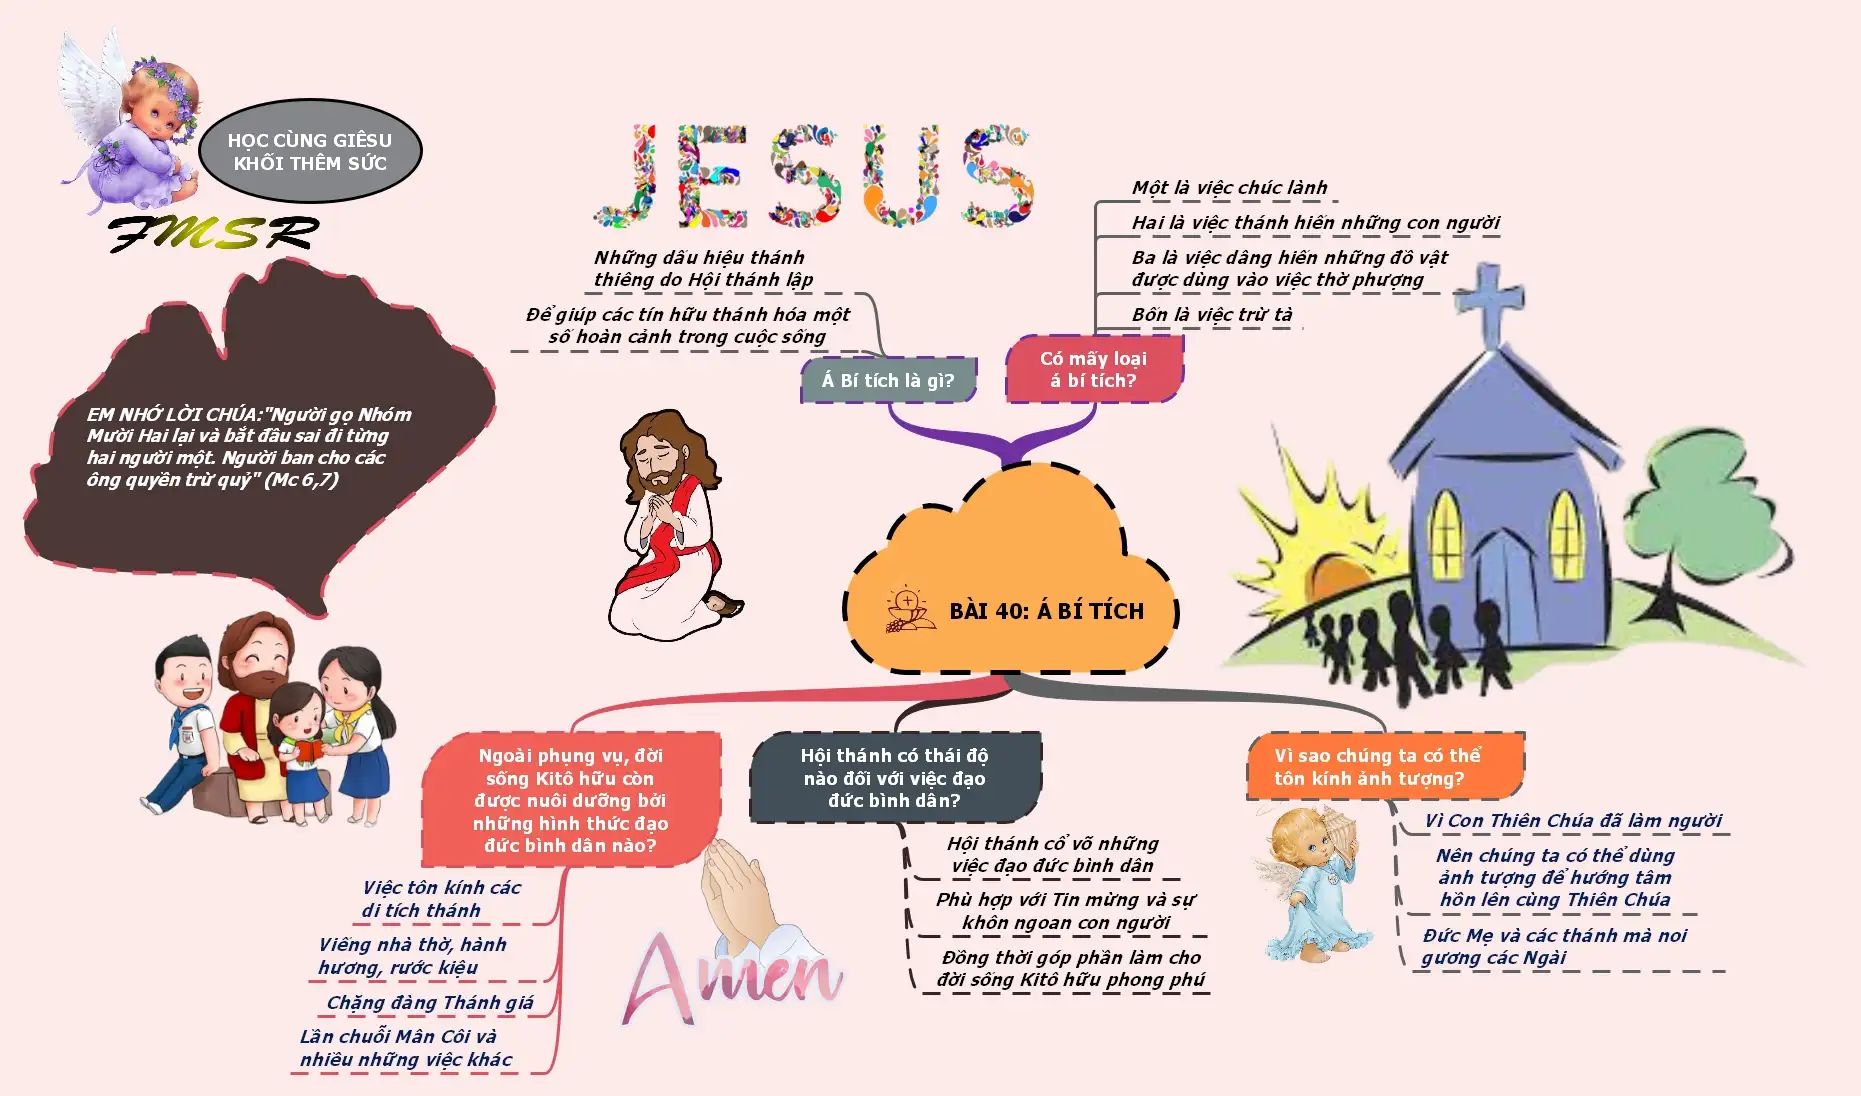 HỌC CÙNG GIÊSU
KHỐI THÊM SỨC
FMSR
JESUS
EM NHỚ LỜI CHÚA:"Người gọ Nhóm
Mười Hai lại và bắt đầu sai đi từng
hai người một. Người ban cho các
ông quyền trừ quỷ" (Mc 6,7)
Những dấu hiệu thánh
thiêng do Hội thánh lập
Để giúp các tín hữu thánh hóa một
số hoàn cảnh trong cuộc sống
Á Bí tích là gì?
Một là việc chúc lành
Hai là việc thánh hiến những con người
Ba là việc dâng hiến những đồ vật
được dùng vào việc thờ phượng
Bốn là việc trừ tà
Có mấy loại
á bí tích?
BÀI 40: Á BÍ TÍCH
Ngoài phụng vụ, đời
sống Kitô hữu còn
được nuôi dưỡng bởi
những hình thức đạo
đức bình dân nào?
Việc tôn kính các
di tích thánh
Viếng nhà thờ, hành
hương, rước kiệu
Chặng đàng Thánh giá
Lần chuỗi Mân Côi và
nhiều những việc khác
Amen
Hội thánh có thái độ
nào đối với việc đạo
đức bình dân?
Hội thánh cổ võ những
việc đạo đức bình dân
Phù hợp với Tin mừng và sự
khôn ngoan con người
Đồng thời góp phần làm cho
đời sống Kitô hữu phong phú
Vì sao chúng ta có thể
tôn kính ảnh tượng?
Vì Con Thiên Chúa đã làm người
Nên chúng ta có thể dùng
ảnh tượng để hướng tâm
hồn lên cùng Thiên Chúa
Đức Mẹ và các thánh mà noi
gương các Ngài